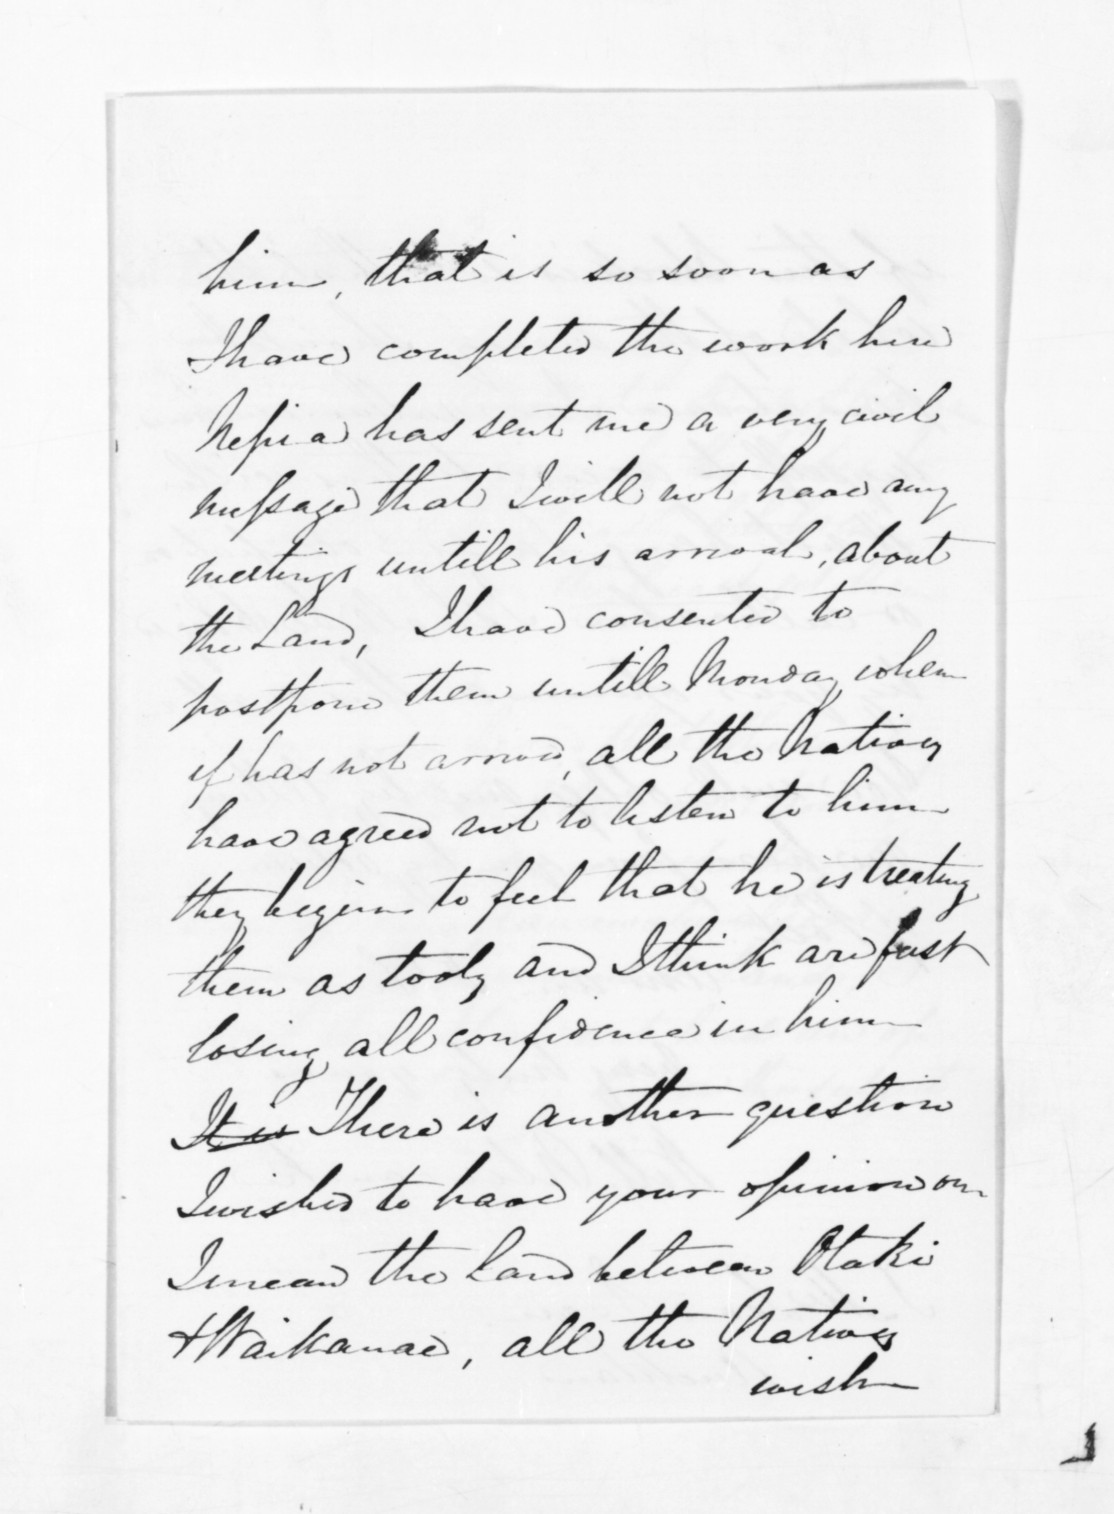 him, that is so soon as
I have completed the work here
Nepia has sent me a very civil
message that I will not have any
meetings untill his arrival, about
the Land, I have consented to
postpone them untill Monday when
if has not arrived, all the Natives
have agreed not to listen to him
they begin to feel that he is treating
them as tools and I think are fast
losing all confidence in him
It is There is another question
I wished to have your opinion on
I mean the Land between Otaki
& Waikanae, all the Natives
wish